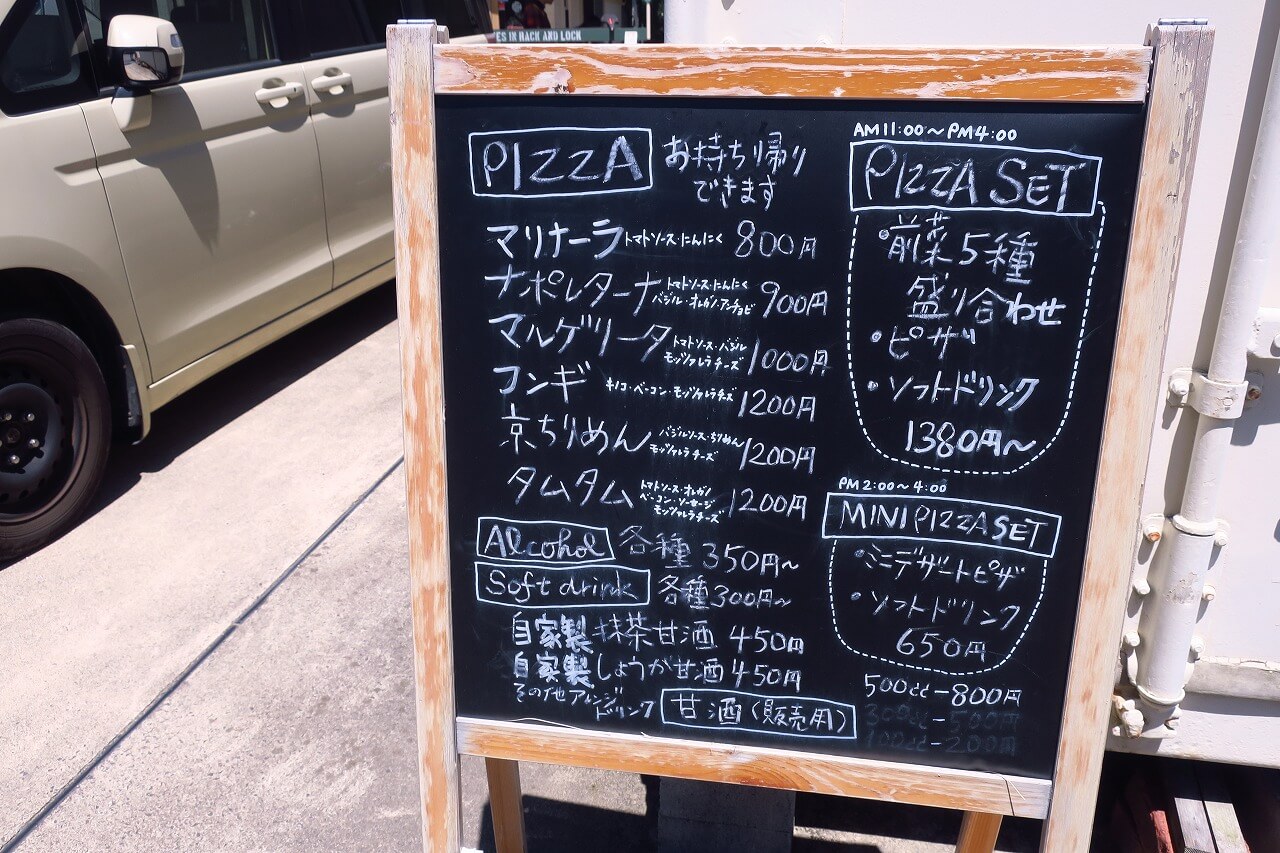 ES IN RACK AND LOCK
PIZZA お持ち帰り
できます
マリナーラ トマトソース・にんにく 800円
ナポレターナ トマトソース・にんにく
バジル・オレガノ・アンチョビ 900円
マルゲリータ トマトソース・バジル
モッツァレラチーズ 1000円
コンギ キノコ・ベーコン・モッツァレラチーズ 1200円
京ちりめん バジルソース・ちりめん
モッツァレラチーズ 1200円
タムタム トマトソース・オレガノ
ベーコン・ソーセージ
モッツァレラチーズ 1200円
Alcohol 各種 350円~
Soft drink 各種 300円~
自家製抹茶甘酒 450円
自家製しょうが甘酒 450円
その他アレンジ
ドリンク
甘酒(販売用)
500cc-800円
300cc-500円
100cc-200円
AM11:00~PM4:00
PIZZA SET
・前菜5種
盛り合わせ
・ピザ
・ソフトドリンク
1380円~
PM2:00~4:00
MINI PIZZA SET
・ミニデザートピザ
・ソフトドリンク
650円